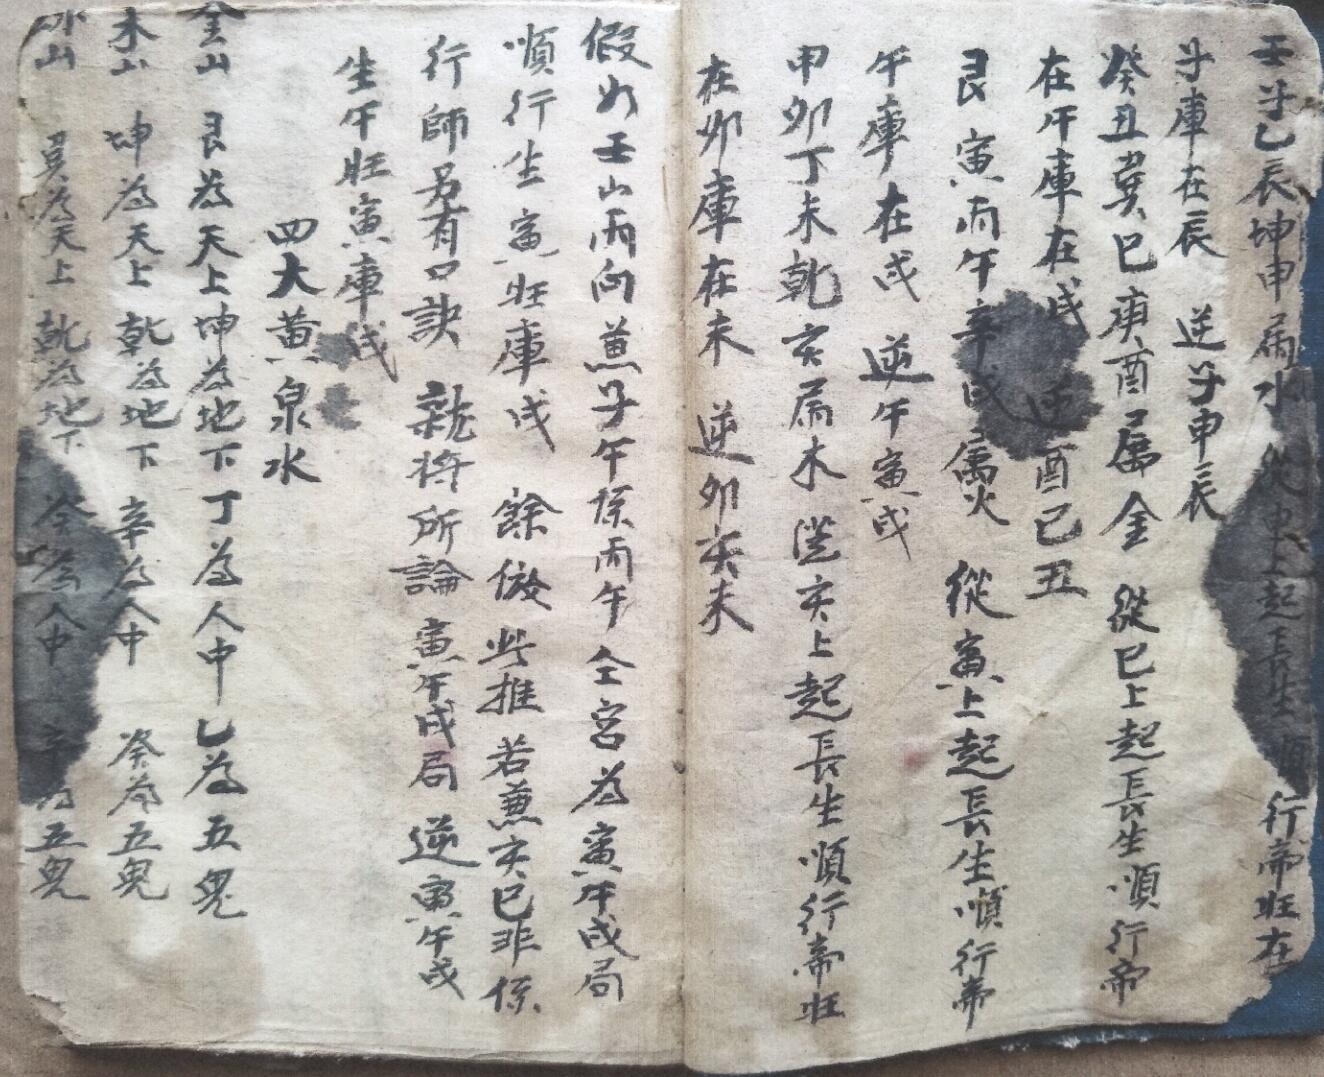 壬子乙辰坤申屬水從申上起長生順行帝旺在
子庫在辰 逆子申辰
癸丑巽巳庚酉屬金 從巳上起長生順行帝
在午庫在戌 逆酉巳丑
艮寅丙午辛戌屬火 從寅上起長生順行帝
午庫在戌 逆午寅戌
甲卯丁未乾亥屬木 從亥上起長生順行帝旺
在卯庫在未 逆卯亥未
假如壬山丙向兼子午係丙午仝宮為寅午戌局
順行生寅旺庫戌 餘倣此推若兼亥巳非係
行師另有口訣 就將所論寅午戌局 逆寅午戌
生午旺寅庫戌
四大黃泉水
金山 艮為天上坤為地下丁為人中乙為五鬼
木山 坤為天上乾為地下 辛為人中 癸為五鬼
山 巽為天上乾為地下 癸為人中 辛為五鬼